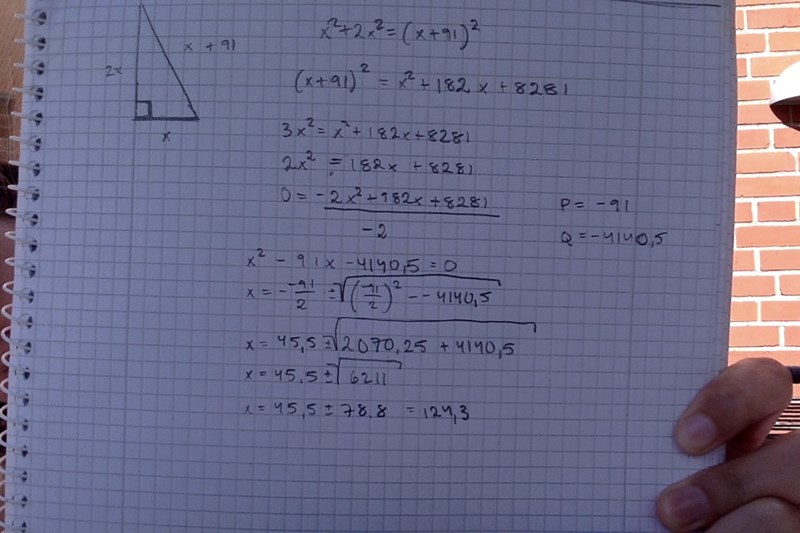 x + 91
2x
x
x²+2x²=(x+91)²
(x+91)² = x²+182x+8281
3x²=x²+182x+8281
2x² = 182x + 8281
0 = -2x²+182x+8281
-2
P = -91
Q = -4140,5
x² - 91x - 4140,5 = 0
x = - -91/2 ± √(-91/2)² - - 4140,5
x = 45,5 ± √2070,25 + 4140,5
x = 45,5 ± √6211
x = 45,5 ± 78,8 = 124,3